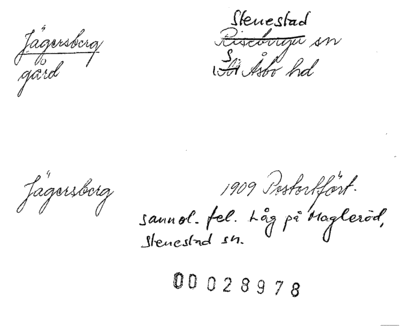 Stenestad
Jägersborg Riseberga sn
gård S. Åsbo hd
Jägersborg 1909 Postortfört.
sannol. fel. Låg på Magleröd,
Stenestad sn.
00028978